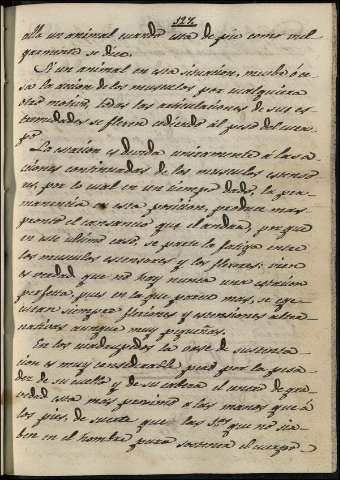 127.
ella un animal cuando esta de pie como vul-
garmente se dice.
Si un animal en esta situacion, muere ó ce-
sa la accion de los musculos por cualquiera
otro motivo, todas las articulaciones de sus es-
tremidades se flexan cediendo al peso del cuer-
po.
La estacion es devida unicamente á las a-
ciones continuadas de los musculos estenso-
res, por lo cual en un tiempo dado, la per-
manencia en esta posicion, produce mas
pronto el cansancio que el andar, porque
en este ultimo caso, se parte la fatiga entre
los musculos estensores y los flexores: bien
es verdad que no hay nunca una estacion
perfecta, pues en la que parece mas, se eje-
cutan siempre flexiones y estensiones alter-
nativas aunque muy pequeñas.
En los cuadrupedos la base de sustenta-
cion es muy considerable pero por la pesa-
dez de su cuello y de su cabeza el centro de gra-
vedad esta mas procsimo a las manos que á
los pies, de suerte que las que no sir-
ben en el hombre para sostener el cuerpo